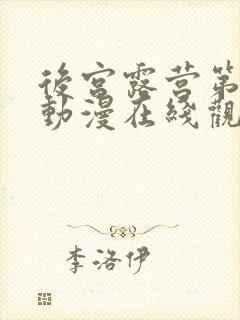 後宮露营第
動漫在綫觀
李洛伊